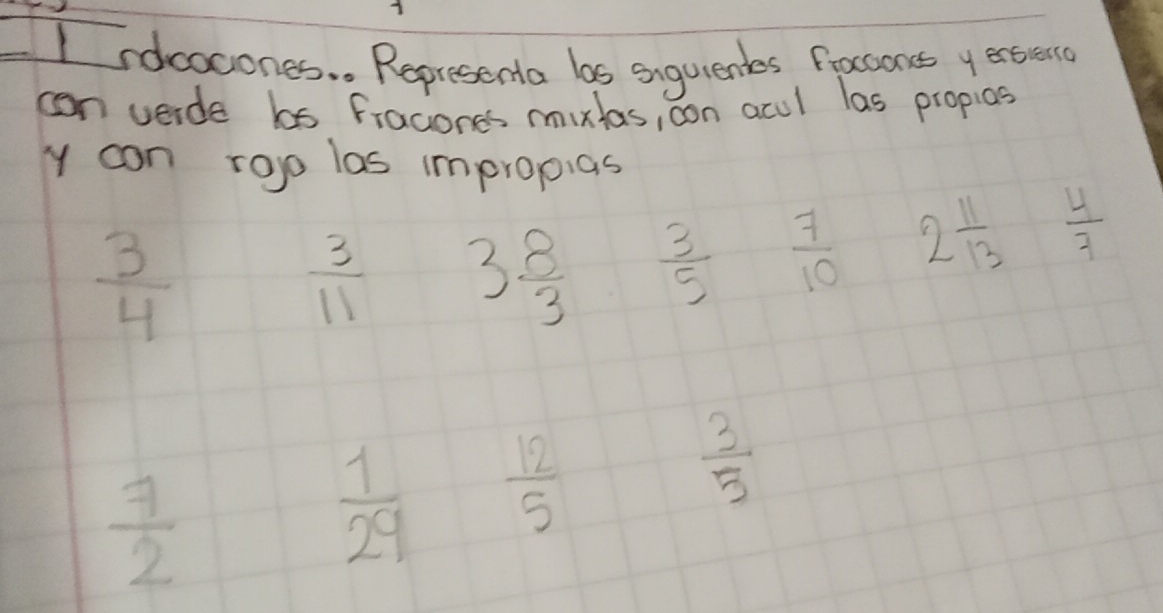 Indicaciones... Representa las siguientes fracciones y encierra
con verde las fraciones mixtas, con acul las propias
y con rojo las impropias
3/4 3/11 3 8/3 3/5 7/10 2 11/13 4/7
7/2 1/29 12/5 3/5